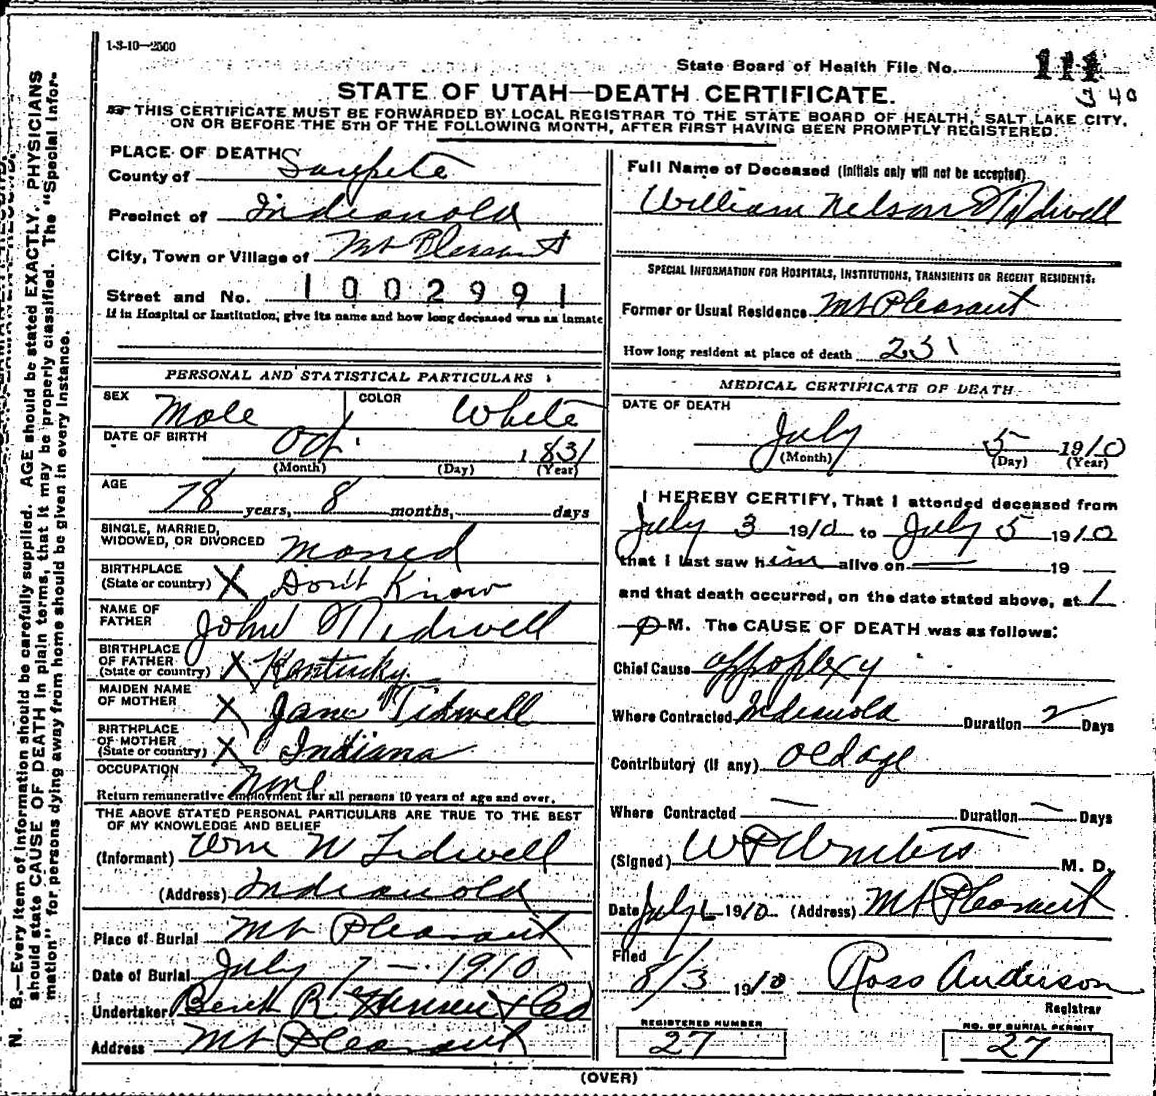 1-3-10—2500
State Board of Health File No. 111
340
STATE OF UTAH—DEATH CERTIFICATE.
THIS CERTIFICATE MUST BE FORWARDED BY LOCAL REGISTRAR TO THE STATE BOARD OF HEALTH, SALT LAKE CITY,
ON OR BEFORE THE 5TH OF THE FOLLOWING MONTH, AFTER FIRST HAVING BEEN PROMPTLY REGISTERED.
PLACE OF DEATH
County of Sanpete
Precinct of Indianola
City, Town or Village of Mt Pleasant
Street and No. 1002991
If in Hospital or Institution, give its name and how long deceased was as inmate
Full Name of Deceased (Initials only will not be accepted).
William Nelson Tidwell
SPECIAL INFORMATION FOR HOSPITALS, INSTITUTIONS, TRANSIENTS OR RECENT RESIDENTS:
Former or Usual Residence Mt Pleasant
How long resident at place of death 231
PERSONAL AND STATISTICAL PARTICULARS
SEX Male COLOR White
DATE OF BIRTH Oct. 1831
(Month) (Day) (Year)
AGE
78 years, 8 months, days
SINGLE, MARRIED,
WIDOWED, OR DIVORCED Maried
BIRTHPLACE
(State or country) X Don't Know
NAME OF
FATHER John Tidwell
BIRTHPLACE
OF FATHER
(State or country) X Kentucky
MAIDEN NAME
OF MOTHER X Jane Tidwell
BIRTHPLACE
OF MOTHER
(State or country) X Indiana
OCCUPATION None
Return remunerative employment for all persons 10 years of age and over.
THE ABOVE STATED PERSONAL PARTICULARS ARE TRUE TO THE BEST
OF MY KNOWLEDGE AND BELIEF
(Informant) Wm N Tidwell
(Address) Indianola
Place of Burial Mt Pleasant
Date of Burial July 7 - 1910
Undertaker R Hansen & Co
Address Mt Pleasant
MEDICAL CERTIFICATE OF DEATH
DATE OF DEATH
July 5 1910
(Month) (Day) (Year)
I HEREBY CERTIFY, That I attended deceased from
July 3 1910 to July 5 1910
that I last saw him alive on — 19
and that death occurred, on the date stated above, at 1
P M. The CAUSE OF DEATH was as follows:
Chief Cause appoplexy
Where Contracted Indianola Duration 2 Days
Contributory (if any) old age
Where Contracted — Duration — Days
(Signed) M. D.
Date July 6 1910 (Address) Mt Pleasant
Filed
8/3 1910 Ross Anderson
Registrar
REGISTERED NUMBER
27
NO. OF BURIAL PERMIT
27
(OVER)
N. B.—Every item of information should be carefully supplied. AGE should be stated EXACTLY. PHYSICIANS
should state CAUSE OF DEATH in plain terms, that it may be properly classified. The "Special Infor-
mation" for persons dying away from home should be given in every instance.